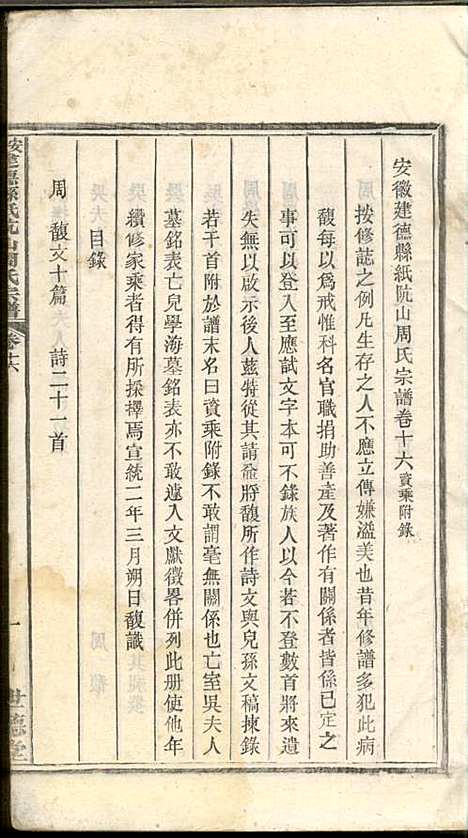 安徽建德縣紙阬山周氏宗譜卷十六資乘附錄
按修誌之例凡生存之人不應立傳嫌溢美也昔年修譜多犯此病
馥每以爲戒惟科名官職捐助善產及著作有關係者皆係已定之
事可以登入至應試文字本可不錄族人以今若不登數首將來遺
失無以啟示後人茲特從其請僉將馥所作詩文與兒孫文稿揀錄
若干首附於譜末名曰資乘附錄不敢謂毫無關係也亡室吳夫人
墓銘表亡兒學海墓銘表亦不敢遽入文獻徵畧併列此册使他年
續修家乘者得有所採擇焉宣統二年三月朔日馥識
目錄
周馥文十篇 詩二十一首
安建德縣紙阬山周氏宗譜
卷十六
一
世德堂